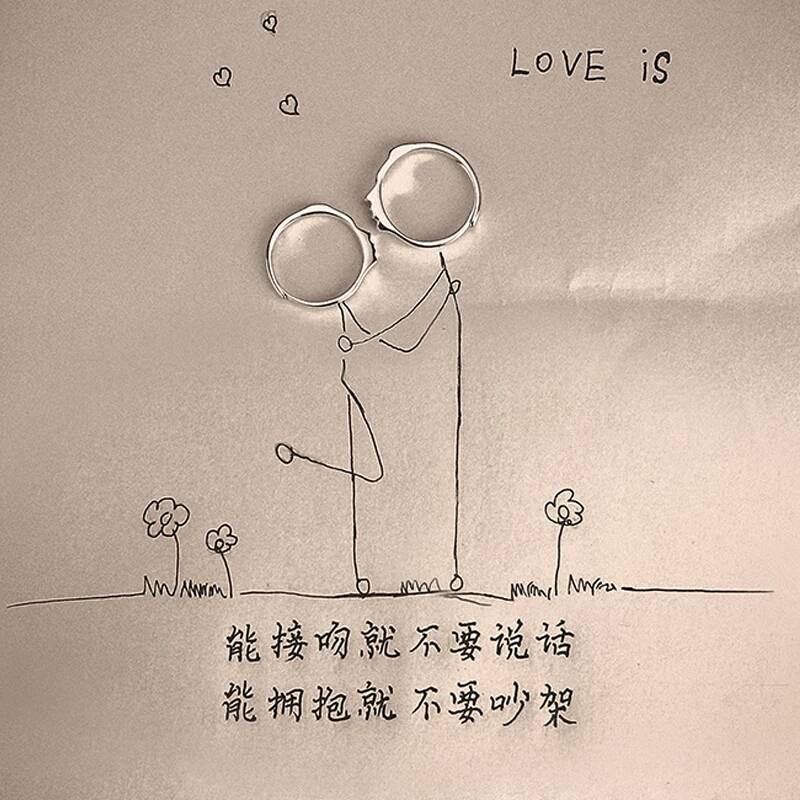 LOVE iS
能接吻就不要说话
能拥抱就不要吵架